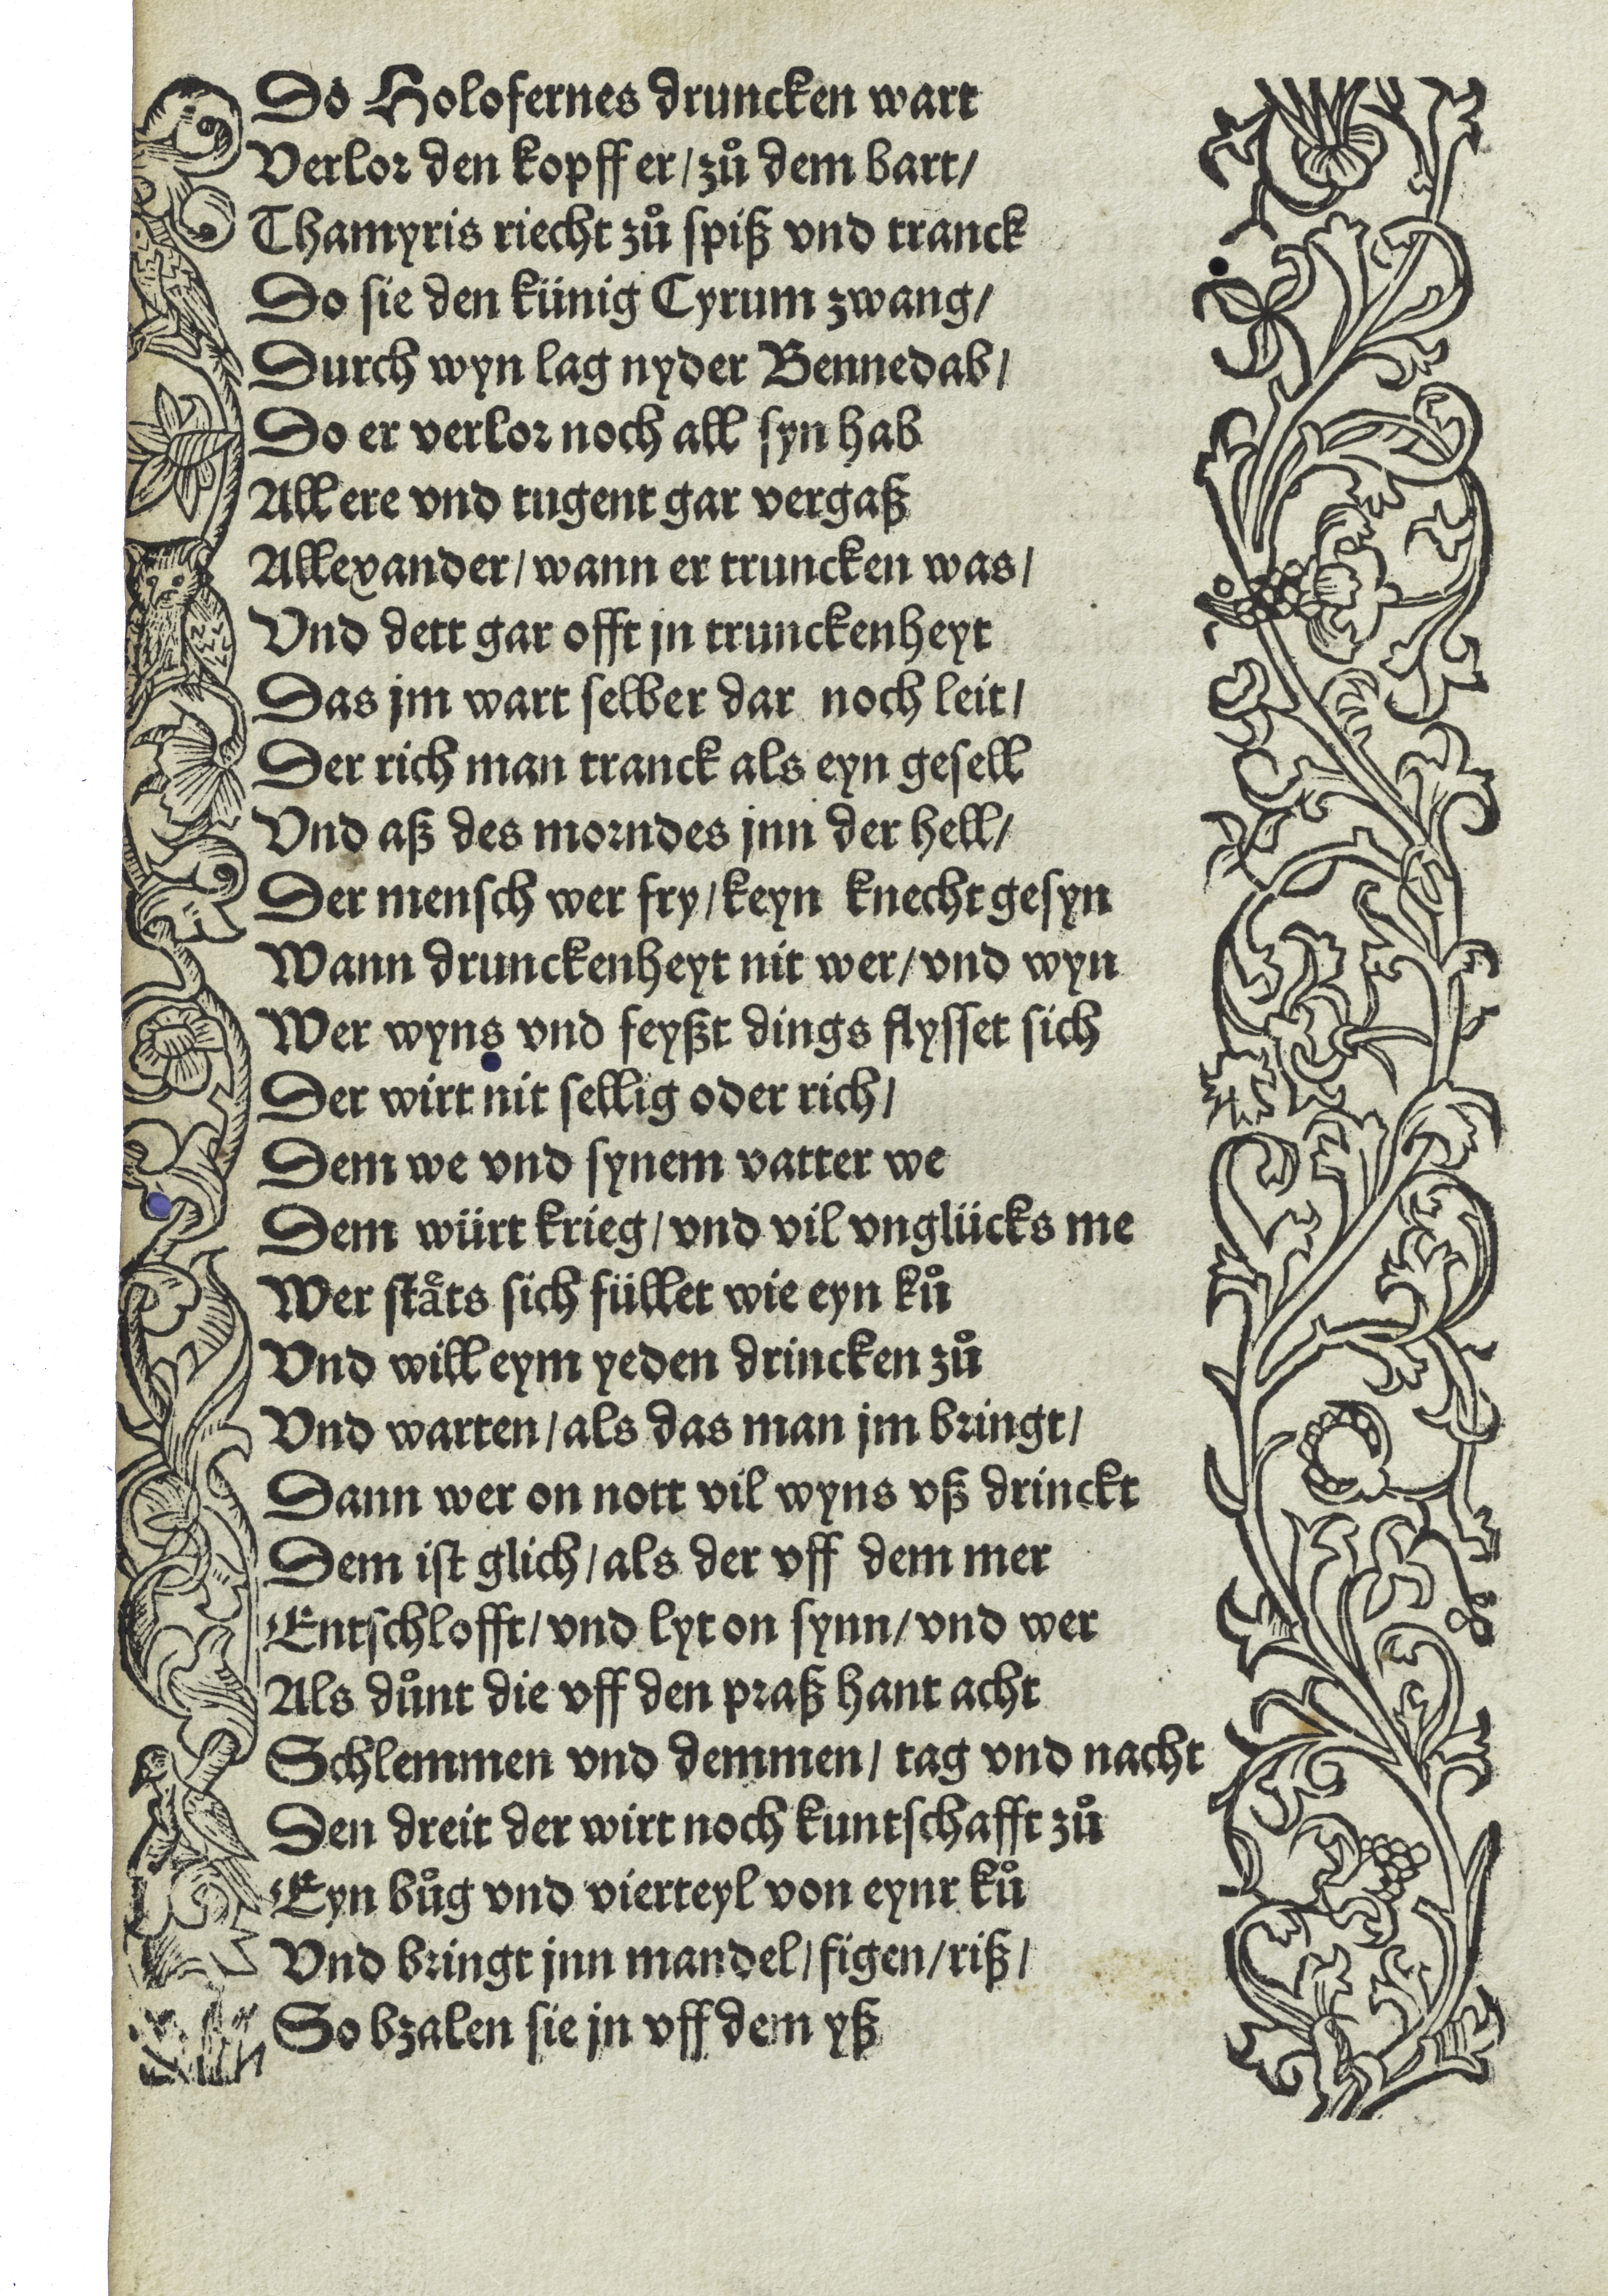 Do Holofernes druncken wart
Verlor den kopff er/zuͦ dem bart/
Thamyris riecht zuͦ spiß vnd tranck
Do sie den künig Cyrum zwang/
Durch wyn lag nyder Bennedab/
Do er verlor noch all syn hab
All ere vnd tugent gar vergaß
Allexander/wann er truncken was/
Vnd dett gar offt jn trunckenheyt
Das jm wart selber dar noch leit/
Der rich man tranck als eyn gesell
Vnd aß des morndes jnn der hell/
Der mensch wer fry/keyn knecht gesyn
Wann drunckenheyt nit wer/vnd wyn
Wer wyns vnd feyßt dings flysset sich
Der wirt nit sellig oder rich/
Dem we vnd synem vatter we
Dem würt krieg/vnd vil vnglücks me
Wer staͤts sich füllet wie eyn kuͦ
Vnd will eym yeden drincken zuͦ
Vnd warten/als das man jm bringt/
Dann wer on nott vil wyns vß drinckt
Dem ist glich/als der vff dem mer
Entschlofft/vnd lyt on synn/vnd wer
Als duͦnt die vff den praß hant acht
Schlemmen vnd demmen/tag vnd nacht
Den dreit der wirt noch kuntschafft zuͦ
Eyn buͦg vnd vierteyl von eynr kuͦ
Vnd bringt jnn mandel/figen/riß/
So bzalen sie jn vff dem yß